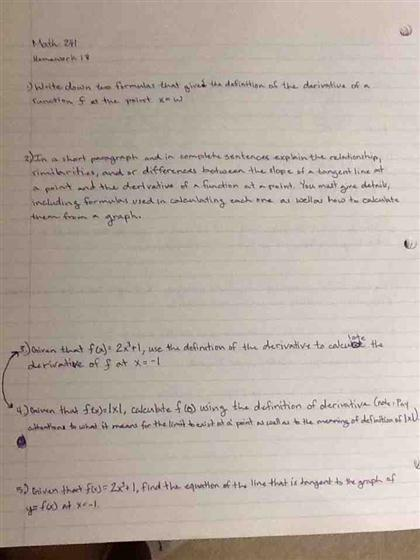 Math 241
Homework 18
1) Write down two formulas that gives the definition of the derivative of a
function f at the point x=w
2) In a short paragraph and in complete sentences explain the relationship,
similarities, and or differences between the slope of a tangent line at
a point and the derivative of a function at a point. You must give details,
including formulas used in calculating each one as well as how to calculate
them from a graph.
3) Given that f(x)= 2x³+1, use the definition of the derivative to calculate the
derivative of f at x=-1
4) Given that f(x)=|x|, calculate f'(0) using the definition of derivative (note: Pay
attentions to what it means for the limit to exist at a point as well as to the meaning of definition of |x|)
5) Given that f(x)= 2x³+1, find the equation of the line that is tangent to the graph of
y= f(x) at x=-1.